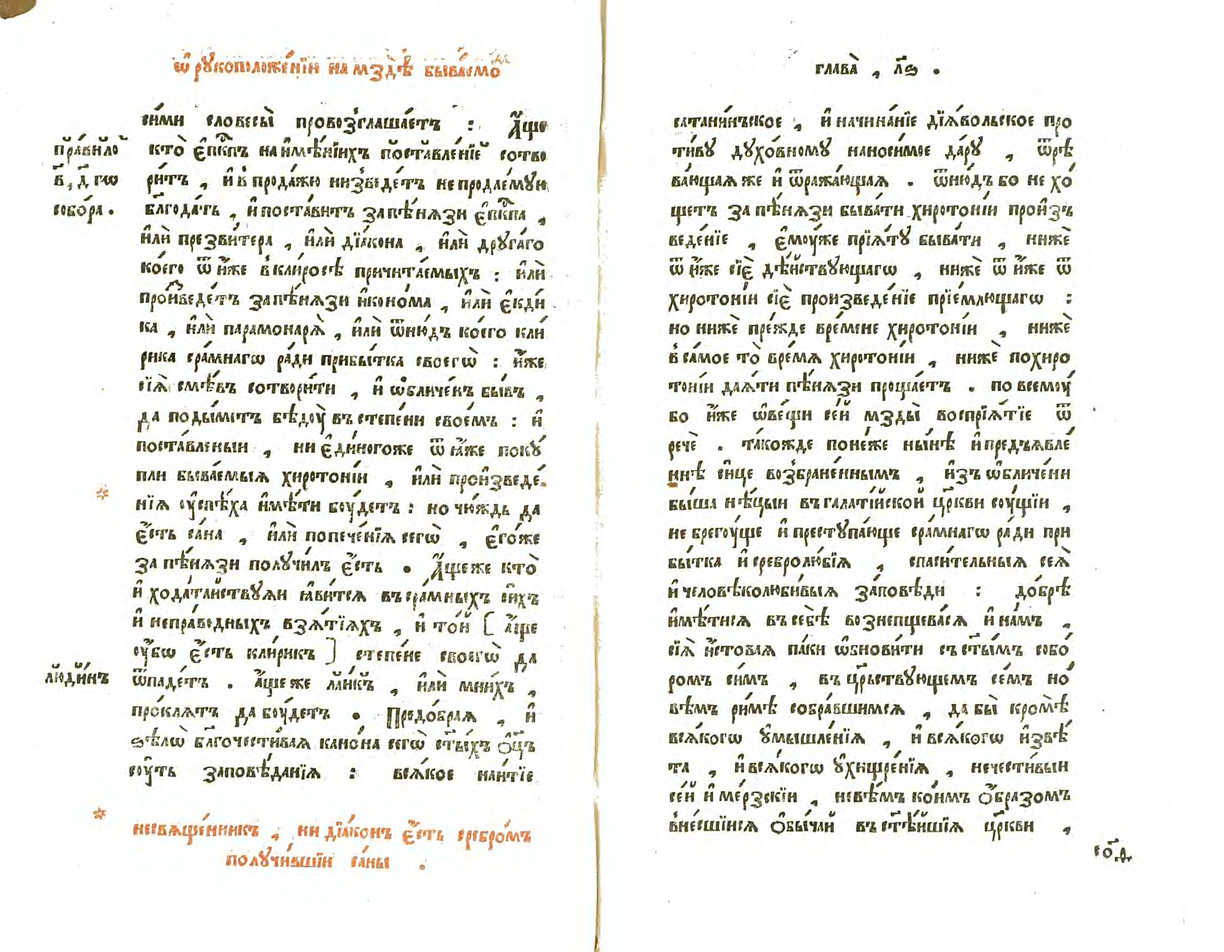 ѿ рꙋкоположе́нїи на мздѣ̀ быва́емо
си́ми словесы̀ провозглаша́етъ : А҆́ще
пра́вило
в҃, д҃ гѡ
собо́ра .
кто̀ є҆пкⷭ҇пъ на и҆мѣ́нїихъ поставле́нїе сотво
ри́тъ , и҆ в продажꙋ низведе́тъ непродае́мꙋю
бл҃года́ть , и҆ поста́витъ за пѣ́нѧзи є҆пкⷭ҇па ,
и҆лѝ презви́тера , и҆лѝ дїа́кона , и҆лѝ дрꙋга́го
коего̀ ѿ и҆́же в кли́росѣ причита́емыхъ : и҆лѝ
произведе́тъ за пѣ́нѧзи и҆коно́ма , и҆лѝ є҆кди
ка , и҆лѝ парамонарѧ̀ , и҆лѝ ѿню́дъ коего̀ кли́
рика сра́мнагѡ ра́ди прибы́тка своегѡ̀ : и҆́же
сїѧ̀ смѣ́въ сотвори́ти , и҆ ѡ҆бличе́нъ бы́въ ,
да поды́метъ бѣдоу̀ въ сте́пени свое́мъ : и҆
поста́вленыи , ни є҆ди́ногоже ѿ ꙗ҆́же покꙋ́
пли быва́емыѧ хирото́нїи , и҆лѝ произведе́
нїѧ оу҆спѣ́ха и҆мѣ́ти боу́детъ : но чю́ждь да
є҆́сть са́на , и҆лѝ попече́нїѧ сегѡ̀ , є҆го́же
за пѣ́нѧзи полꙋчи́лъ є҆́сть . А҆́щеже кто̀
и҆ хода́тайствꙋѧи ꙗ҆ви́тсѧ въ сра́мныхъ си́хъ
и҆ непра́ведныхъ взѧ́тїѧхъ , и҆ то́й [ а҆́ще
оу҆́бѡ є҆́сть кли́рик ] сте́пене своегѡ̀ да
лю́динъ
ѿпаде́тъ . а҆́щеже лаи́къ , и҆лѝ мни́хъ ,
про́клѧтъ да боу́детъ . Предо́браѧ , и҆
ѕѣлѡ̀ бл҃гочести́ваѧ кано́на сегѡ̀ ст҃ы́хъ ѻ҆ц҃ъ
соу́ть заповѣ́данїѧ : всѧ́кое наи́тїе
несвѧще́нникъ , ни дїа́конъ є҆́сть сребро́мъ
полꙋчи́вшїи са́ны .
глава̀ , л҃ѕ .
сатани́нъское , и҆ начина́нїе дїѧ́вольское про
ти́вꙋ дꙋхо́вномꙋ наноси́мое да́рꙋ , ѿрѣ
ва́ющаѧ же и҆ ѿража́ющаѧ . ѿню́дъ бо не хо́
щетъ за пѣ́нѧзи быва́ти хирото́нїи прои҆зъ
веде́нїе , є҆моу́же прїѧ́тꙋ быва́ти , нижѐ
ѿ и҆́же сїѐ дѣ́йствꙋющагѡ , нижѐ ѿ и҆́же ѿ
хирото́нїи сїѐ произведе́нїе прїе́млющагѡ :
но нижѐ пре́жде вре́мене хирото́нїи , нижѐ
в са́мое то̀ вре́мѧ хирото́нїи , нижѐ по хиро
то́нїи даѧ́ти пѣ́нѧзи проща́етъ . по всемоу̀
бо и҆́же ѡ҆ ве́щи се́й мзды̀ воспрїѧ́тїе ѿ
речѐ . та́кожде поне́же ны́нѣ и҆ предъѧвле́
ннѣ си́це возбране́ннымъ , и҆зъ ѡ҆бличе́ни
бы́ша нѣ́цыи въ гала́тїйской цр҃кви соу́щїи ,
не брегоу́ще и҆ престꙋпа́юще сра́мнагѡ ра́ди при
бы́тка и҆ сребролю́бїѧ , спаси́тельныѧ сеѧ̀
и҆ человѣколюби́выѧ за́повѣди : добрѣ̀
и҆мѣ́тисѧ въ себѣ̀ вознепщева́сѧ и҆ на́мъ ,
сїѧ̀ и҆́стоваѧ па́ки ѡ҆бнови́ти съ ст҃ы́мъ собо́
ромъ си́мъ , въ цр҃ьствꙋющемъ се́мъ но́
вѣмъ ри́мѣ собра́вшимсѧ , да бы̀ кромѣ̀
всѧ́когѡ ᲂумышле́нїѧ , и҆ всѧ́когѡ и҆звѣ́
та , и҆ всѧ́когѡ ᲂухищре́нїѧ , нечести́выи
се́й и҆ ме́рзскїи , невѣ́мъ кои́мъ ѻ҆́бразомъ
внесшїисѧ ѻ҆бы́чаи въ ст҃ѣ́йшїѧ цр҃кви ,